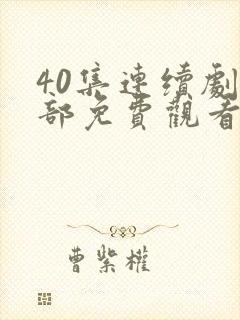 40集連續劇
部免費觀看
曹紫權